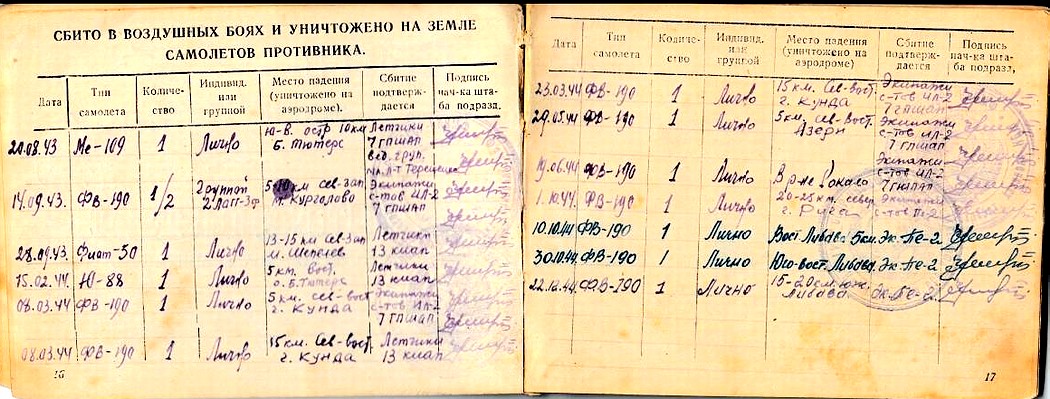 СБИТО В ВОЗДУШНЫХ БОЯХ И УНИЧТОЖЕНО НА ЗЕМЛЕ
САМОЛЕТОВ ПРОТИВНИКА.
Дата Тип самолета Количество Индивид. или группой Место падения (уничтожено на аэродроме). Сбитие подтверждается Подпись нач-ка штаба подразд.
20.08.43 Ме-109 1 Лично Ю-В. остр 10км Б. Тютерс Летчики 7 ГПШАП вед. груп.
14.09.43. ФВ-190 1/2 группой 2 Лагг-3 км сев-зап м. Курголово Экипажи с-тов ИЛ-2 7 ГПШАП
28.09.43. Фиат-50 1 Лично 13-15 км сев-зап м. Шепелев Летчики 13 КИАП
15.02.44. Ю-88 1 Лично 5км. Вост. о. Б. Тютерс Летчики 13 КИАП
08.03.44 ФВ-190 1 Лично 5км. сев-вост г. Кунда Экипажи с-тов ИЛ-2 7 ГПШАП
08.03.44 ФВ-190 1 Лично 15км. сев-вост. г. Кунда Летчики 13 КИАП
16
Дата Тип самолета Количество Индивид. или группой Место падения (уничтожено на аэродроме) Сбитие подтверждается Подпись нач-ка штаба подразд.
23.03.44 ФВ-190 1 Лично 15км. сев-вост. г. Кунда Экипажи с-тов ИЛ-2 7 ГПШАП
29.05.44 ФВ-190 1 Лично 5км. сев. вост. Азери Экипажи с-тов ИЛ-2 7 ГПШАП
19.06.44 ФВ-190 1 Лично В р-не Экипажи с-тов ИЛ-2 7 ГПШАП
1.10.44 ФВ-190 1 Лично 20-25 км. север г. Экипажи с-тов Пе-2
10.10.44 ФВ-190 1 Лично Вост. Либава 5км. Эк. Пе-2
30.10.44 ФВ-190 1 Лично Юго-вост. Либава. Эк. Пе-2
22.12.44 ФВ-190 1 Лично 15-20км. юж. Либава Эк. Пе-2
17